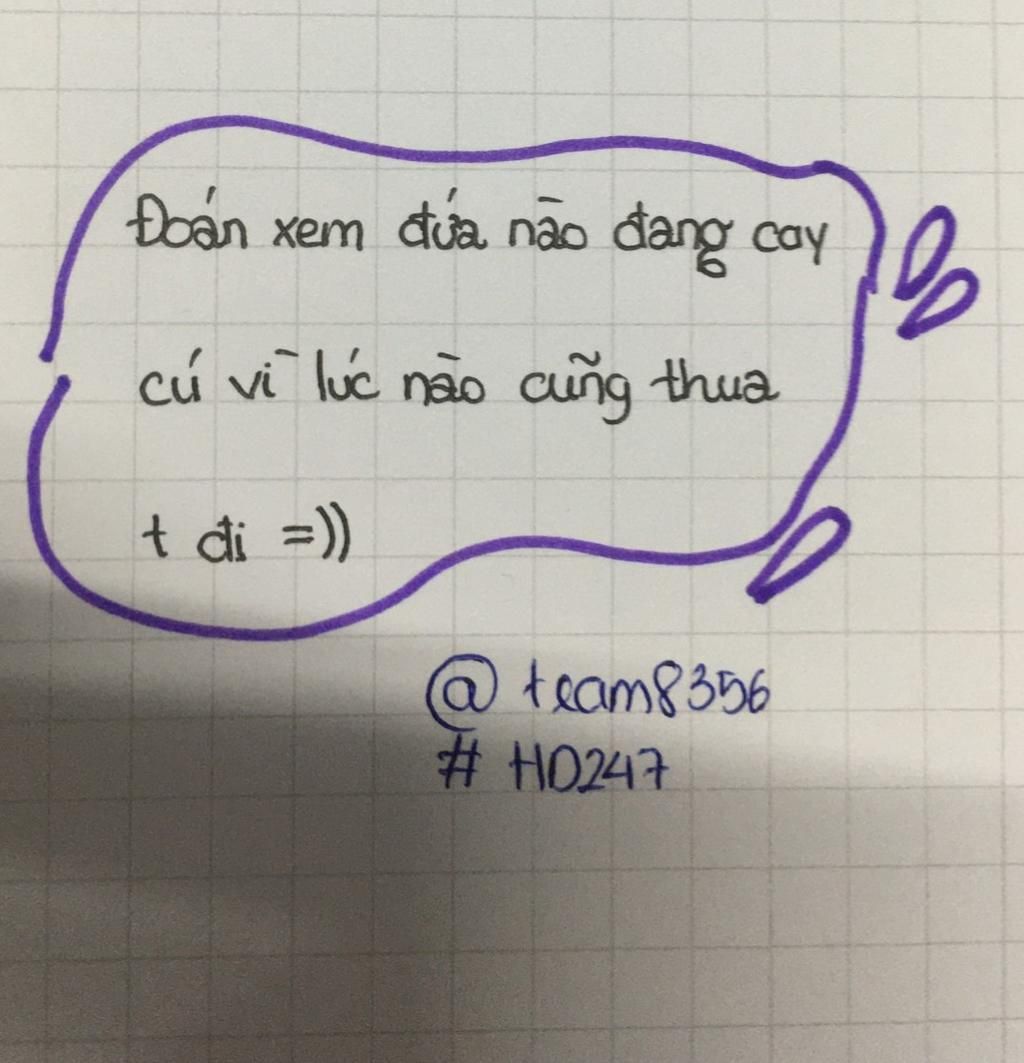 Đoán xem đứa nào đang cay
cú vì lúc nào cũng thua
t đi =))
@ team8356
# HD247